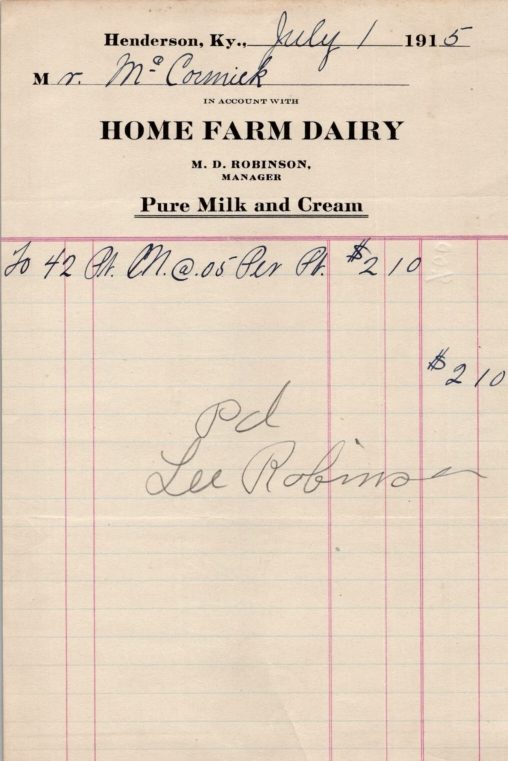 Henderson, Ky., July 1 1915
Mr. Mc Cormick
IN ACCOUNT WITH
HOME FARM DAIRY
M. D. ROBINSON,
MANAGER
Pure Milk and Cream
To 42 Pt. M. @ .05 Per Pt. $2 10
$2 10
Pd
Lee Robinson